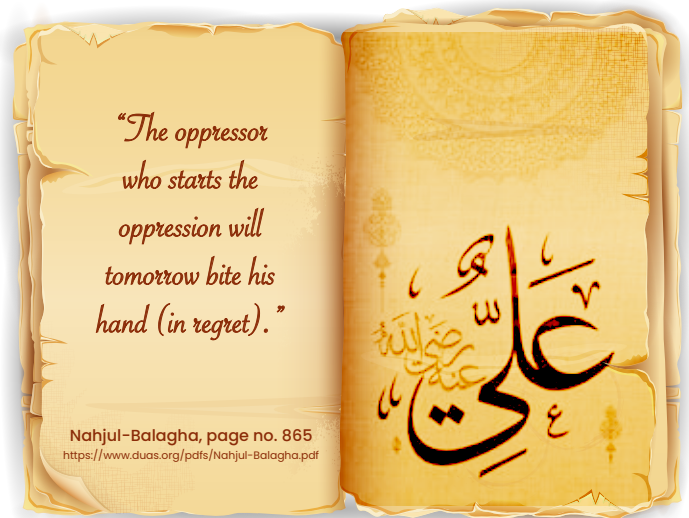 “The oppressor
who starts the
oppression will
tomorrow bite his
hand (in regret).”
Nahjul-Balagha, page no. 865
https://www.duas.org/pdfs/Nahjul-Balagha.pdf
عَلِيّ
رَضِيَ اللّٰه
عَنه